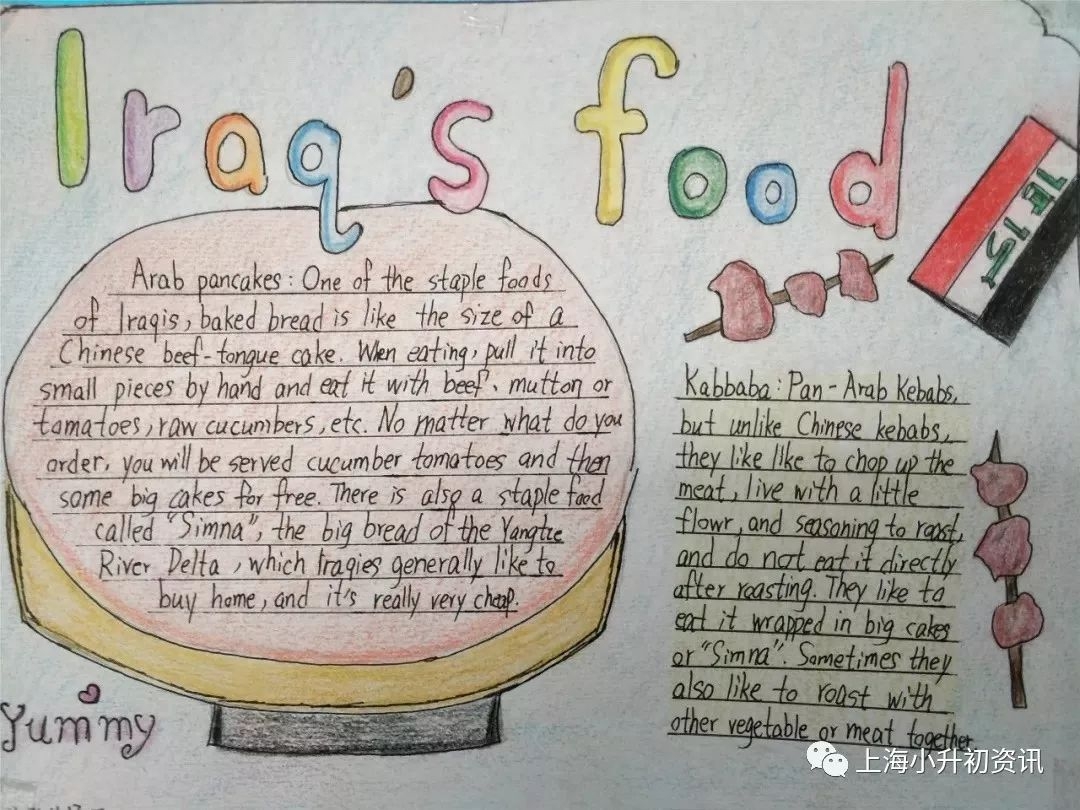 Iraq's food
Arab pancakes: One of the staple foods
of Iraqis, baked bread is like the size of a
Chinese beef-tongue cake. When eating, pull it into
small pieces by hand and eat it with beef、mutton or
tomatoes, raw cucumbers, etc. No matter what do you
order, you will be served cucumber tomatoes and then
some big cakes for free. There is also a staple food
called "Simna", the big bread of the Yangtze
River Delta, which Iraqies generally like to
buy home, and it's really very cheap.
Kabbaba: Pan-Arab Kebabs,
but unlike Chinese kebabs,
they like like to chop up the
meat, live with a little
flowr, and seasoning to roast,
and do not eat it directly
after roasting. They like to
eat it wrapped in big cakes
or "Simna". Sometimes they
also like to roast with
other vegetable or meat together
Yummy
上海小升初资讯